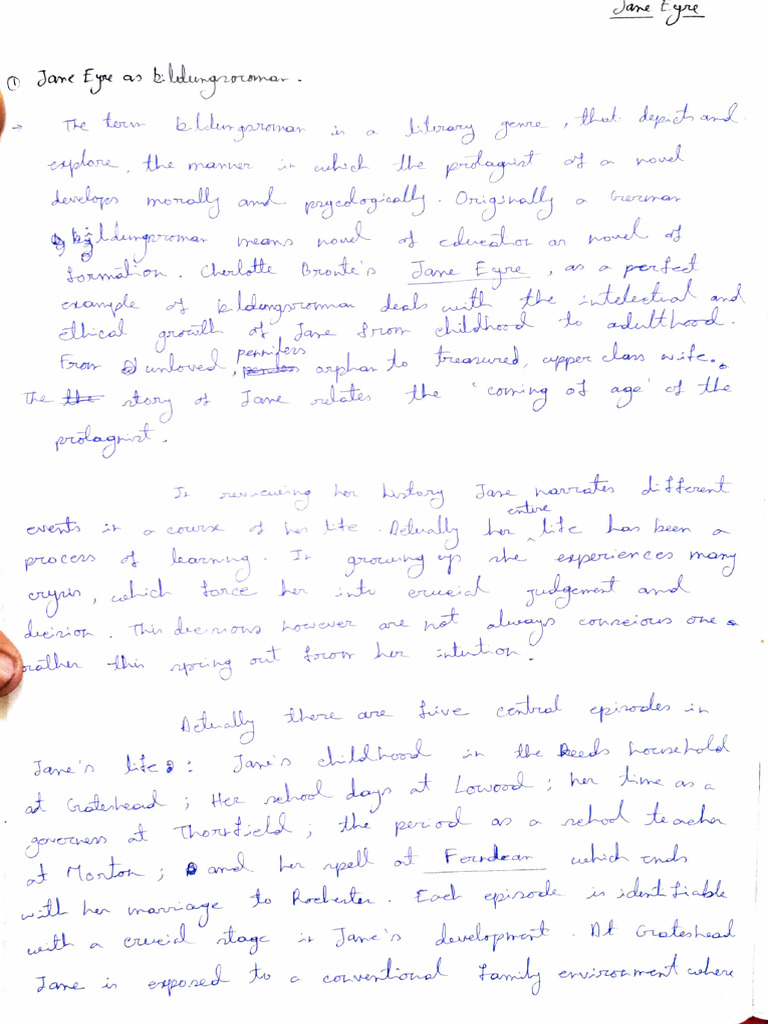 Jane Eyre
① Jane Eyre as bildungsroman.
→ The term bildungsroman is a literary genre, that depicts and
explore, the manner in which the protagnist of a novel
develops morally and psycologically. Originally a German
bildungsroman means novel of education or novel of
formation. Cherlotte Bronte's Jane Eyre, as a perfect
example of bildungsroman deals with the intelectual and
ethical growth of Jane from childhood to adulthood.
From unloved, pennifers orphan to treasured, upper class wife.
The story of Jane relates the 'coming of age' of the
protagnist.
In reviewing her history Jane narrates different
events in a course of her life. Actually her entire life has been a
process of learning. In growing up she experiences many
crysis, which force her into crucial judgement and
decision. This decisions however are not always conscious one
rather this spring out from her intution.
Actually there are five central episodes in
Jane's life: Jane's childhood in the Reeds household
at Grateshead; Her school days at Lowood; her time as a
governess at Thornfield; the period as a school teacher
at Morton; and her spell at Forndean which ends
with her marriage to Rochester. Each episode is identifiable
with a crucial stage in Jane's development. At Grateshead
Jane is exposed to a conventional family environment where